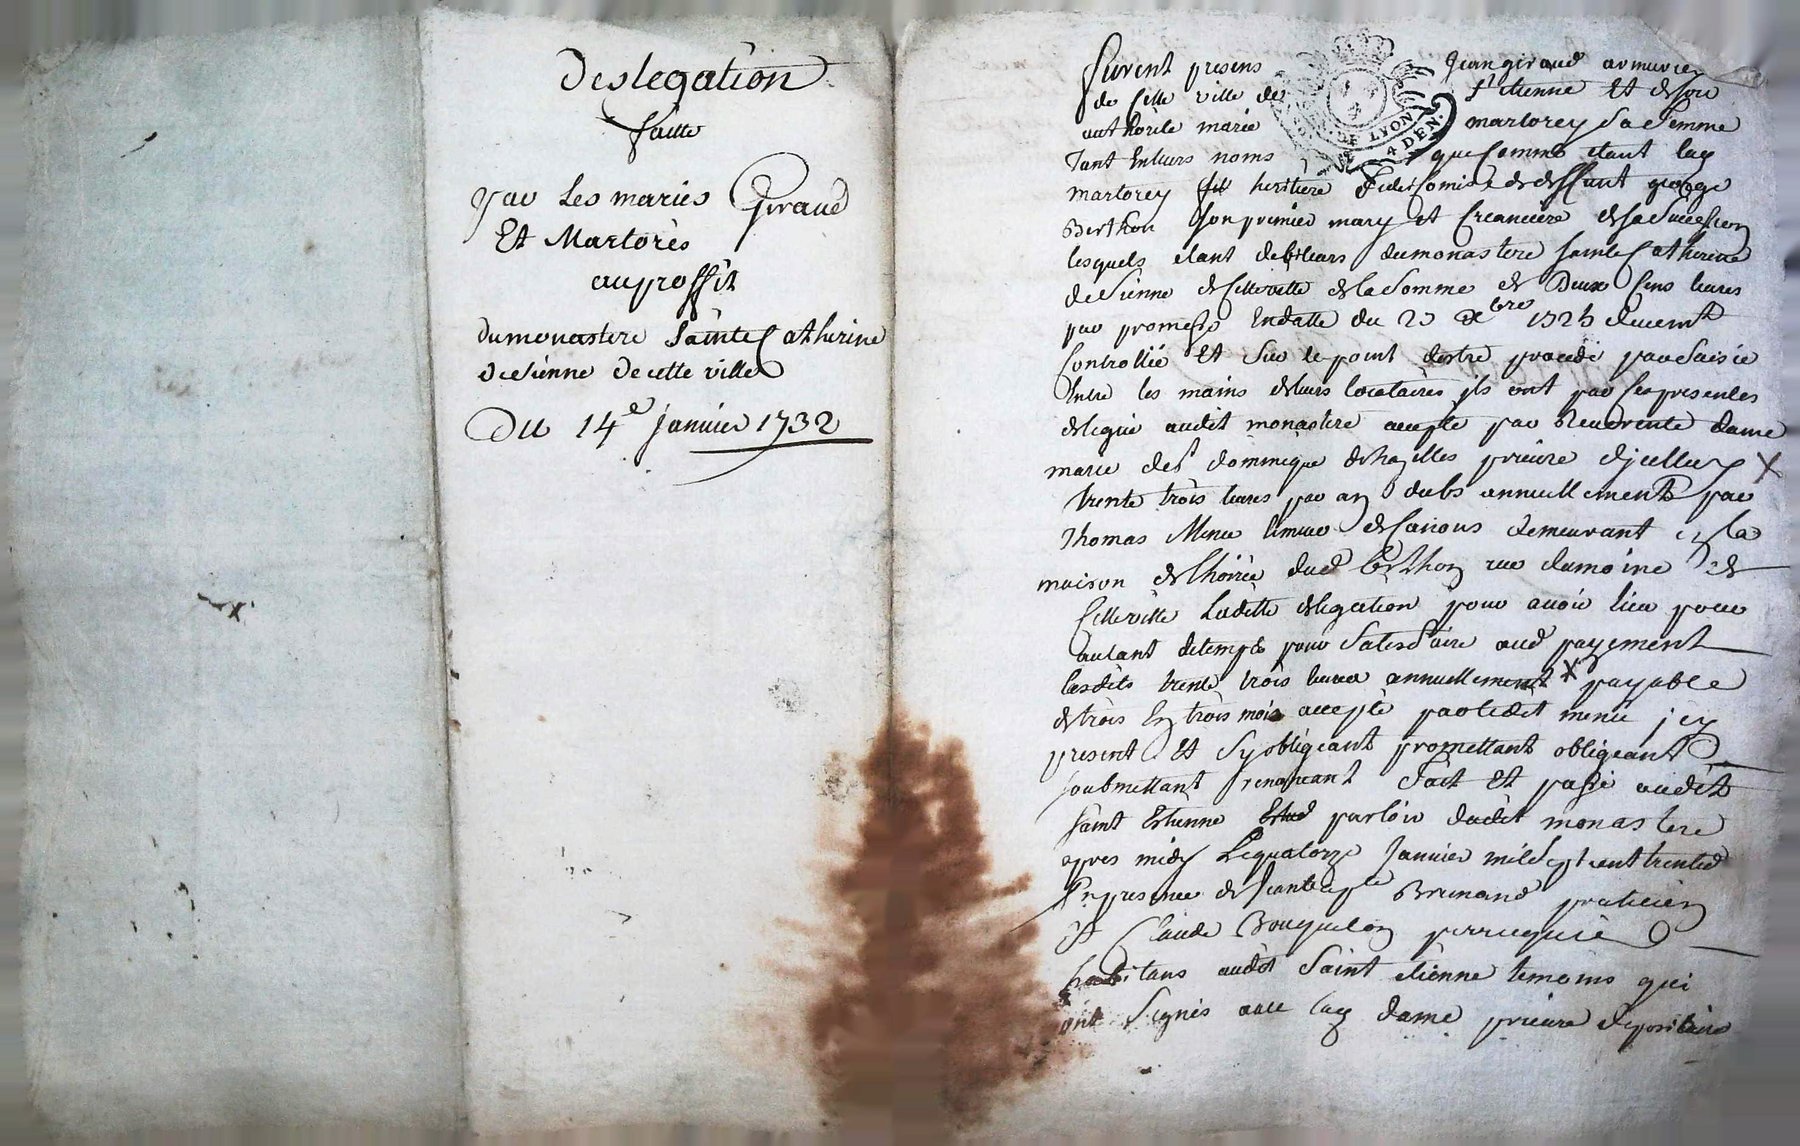 Deslegation
faitte
par Les mariés Giraud
Et Martorès
au proffit
du monastere Sainte Catherine
de Sienne de cette ville
Du 14e janvier 1732
furent presens Jean giraud armurier
de cette ville de st etienne Et de son
authorité marie martorey sa femme
tant En leurs noms que comme etant lad
martorey heritiere fideicomise de deffunt george
Berthon son premier mary et creanciere de sa succession
lesquels etant debiteurs du monastere Sainte Catherine
de Sienne de cette ville de la somme de Deux Cens livres
par promesse En datte du 23 bre decemt
Controllié Et sur le point destre procedé par saisie
Entre les mains de leurs locataires ils ont par ces presentes
delegué audit monastere accepte par Reverente dame
marie de st dominique prieure dicelluy X
trente trois livres par an dubs annuellement par
Thomas Menu limeur de canons demeurant en la
maison de lhoirie dud berthon rue du moine de
Cette ville Laditte delegation pour avoir lieu pour
autant de temps pour satisfaire aud payement
lesdits trente trois livres annuellement X payable
de trois En trois mois accepté par ledit menu icy
present Et sy obligeant promettant obligeant
soubmettant renonceant Fait Et passé audit
Saint Estienne parloir dudit monastere
apres midy Le quatorze Janvier mil sept cent trente d
En presence de Brunand praticien
Et Claude Bouquelon perruquié
habitans audit Saint etienne temoins qui
ont Signés avec lad dame prieure depositaire
DE LYON
4 DEN.